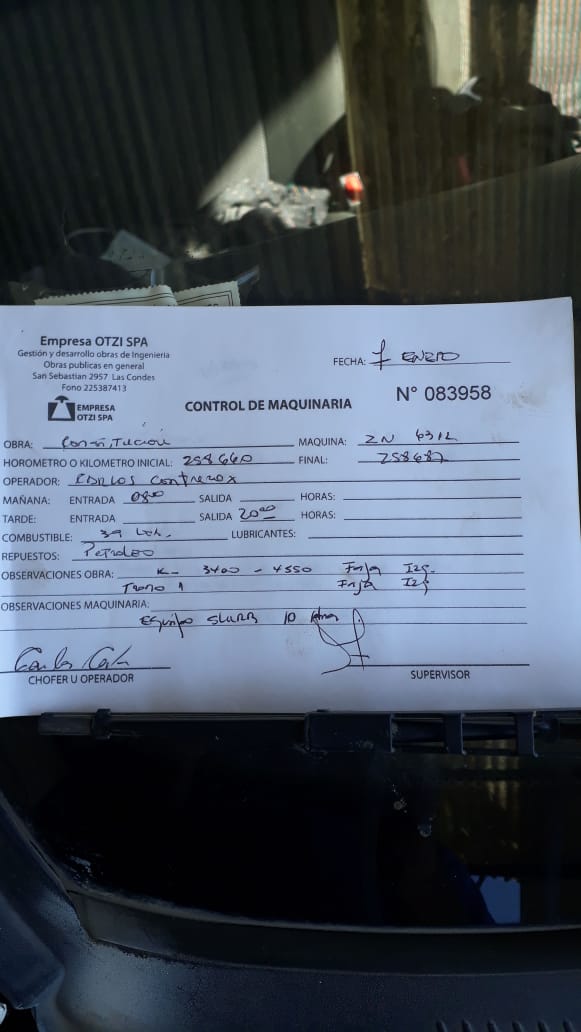 Empresa OTZI SPA
Gestión y desarrollo obras de Ingenieria
Obras publicas en general
San Sebastian 2957 Las Condes
Fono 225387413
EMPRESA
OTZI SPA
FECHA: 7 ENERO
N° 083958
CONTROL DE MAQUINARIA
OBRA: Constitución MAQUINA: ZN 6312
HOROMETRO O KILOMETRO INICIAL: 258660 FINAL: 258682
OPERADOR: CARLOS Contreras
MAÑANA: ENTRADA 0800 SALIDA HORAS:
TARDE: ENTRADA SALIDA 20:00 HORAS:
COMBUSTIBLE: 39 LUBRICANTES:
REPUESTOS: Petroleo
OBSERVACIONES OBRA: K- 3400 - 4550 Faja Izq.
Tramo 1 Faja Izq
OBSERVACIONES MAQUINARIA:
Equipo SLURRY 10
CHOFER U OPERADOR
SUPERVISOR